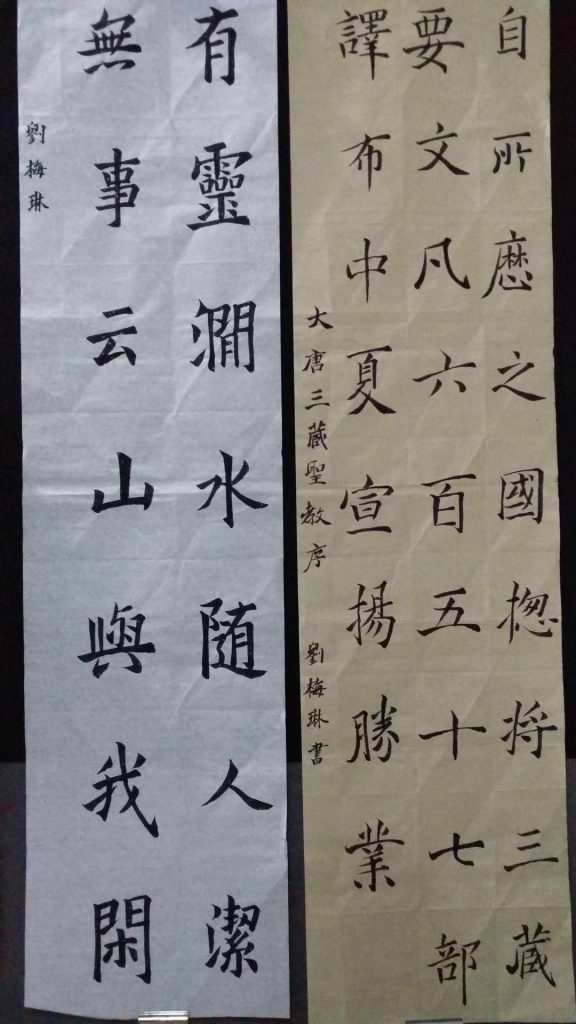 自所歷之國揔将三藏
要文凡六百五十七部
譯布中夏宣揚勝業
大唐三藏聖教序 劉梅琳書
有靈澗水随人潔
無事云山與我閑
劉梅琳